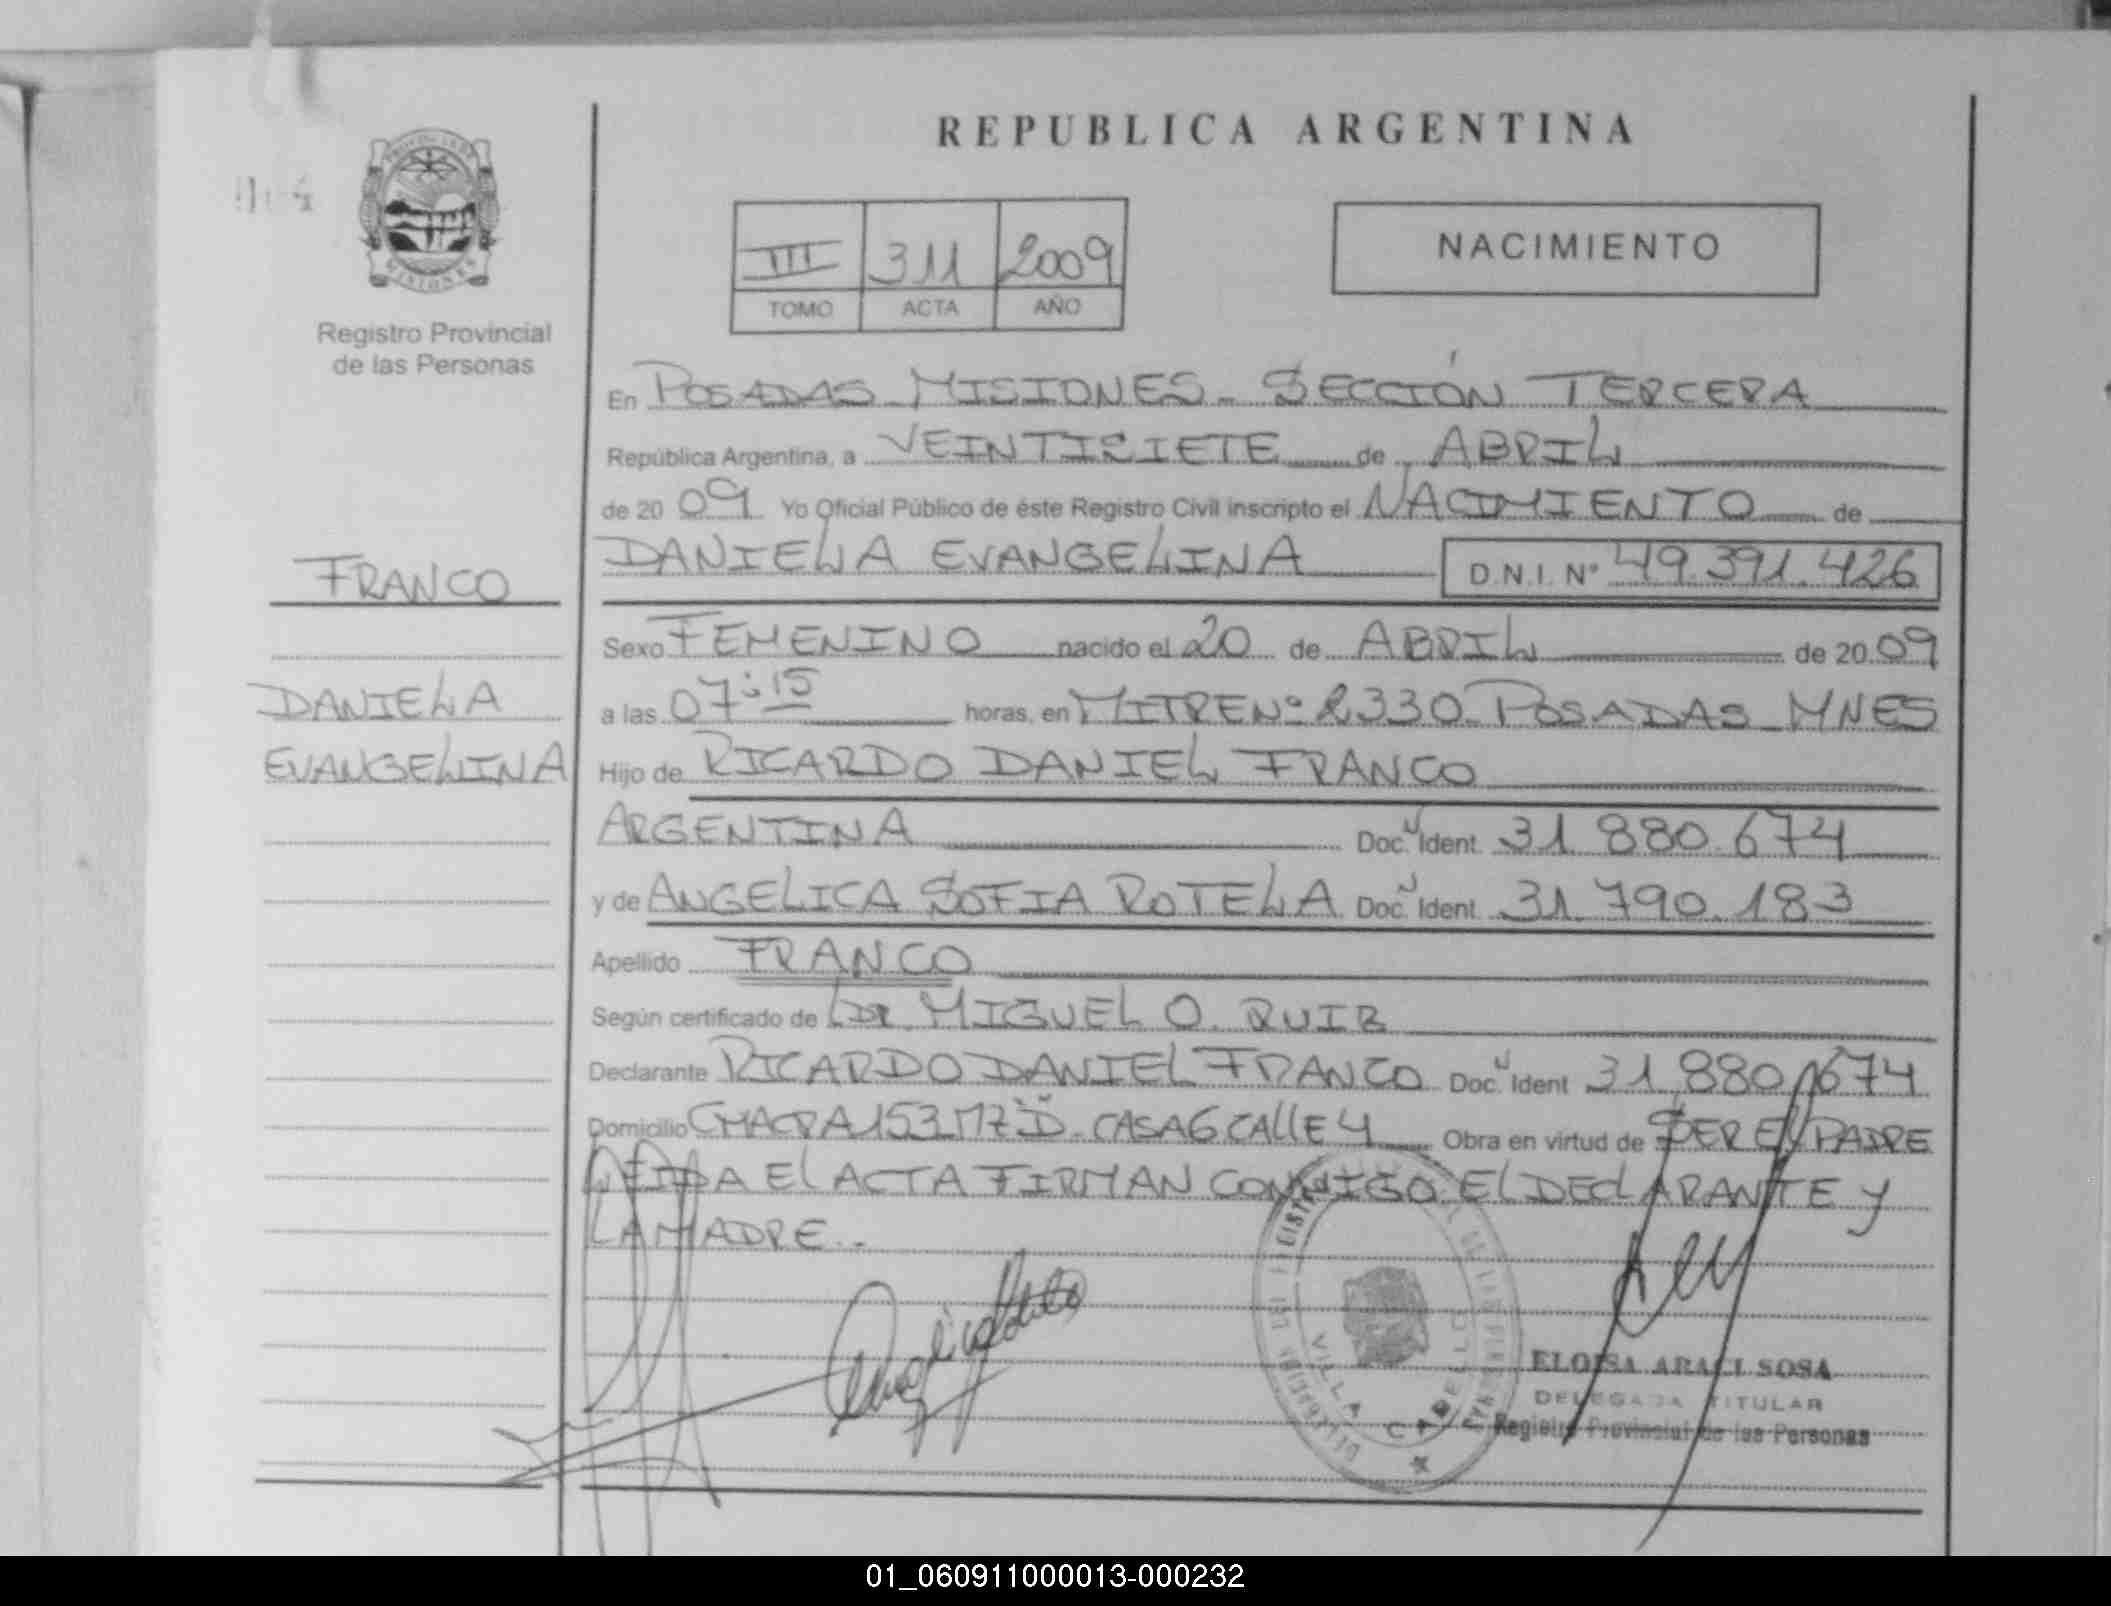 REPUBLICA ARGENTINA
III 311 2009
TOMO ACTA AÑO
NACIMIENTO
Registro Provincial
de las Personas
FRANCO
DANIELA
EVANGELINA
En POSADAS MISIONES - SECCIÓN TERCERA
República Argentina, a VEINTISIETE de ABRIL
de 20 09 Yo Oficial Público de éste Registro Civil inscripto el NACIMIENTO de
DANIELA EVANGELINA D.N.I. Nº 49.391.426
Sexo FEMENINO nacido el 20 de ABRIL de 20 09
a las 07:15 horas, en MITRE Nº 2330 POSADAS MNES
Hijo de RICARDO DANIEL FRANCO
ARGENTINA Doc. Ident. 31.880.674
y de ANGELICA SOFIA ROTELA Doc. Ident. 31.790.183
Apellido FRANCO
Según certificado de DR. MIGUEL O. RUIZ
Declarante RICARDO DANIEL FRANCO Doc. Ident 31.880.674
Domicilio CHACRA 153 MZ "D" CASA 6 CALLE 4 Obra en virtud de SER EL PADRE
LEIDA El ACTA FIRMAN CONMIGO El DEClARANTE y
LA MADRE.-
VILLA CABELLO
ELOISA ARACI SOSA
DELEGADA TITULAR
Registro Provincial de las Personas
01_060911000013-000232